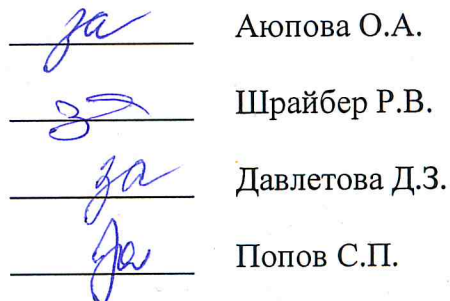 за Аюпова О.А.
за Шрайбер Р.В.
за Давлетова Д.З.
за Попов С.П.